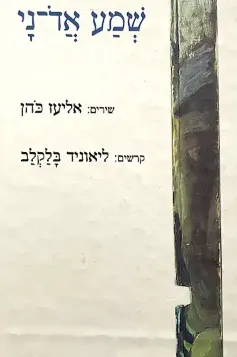 שְׁמַע אֲדֹ־נָי
שירים: אליעז כֹּהן
קרשים: ליאוניד בָּלַקְלַב